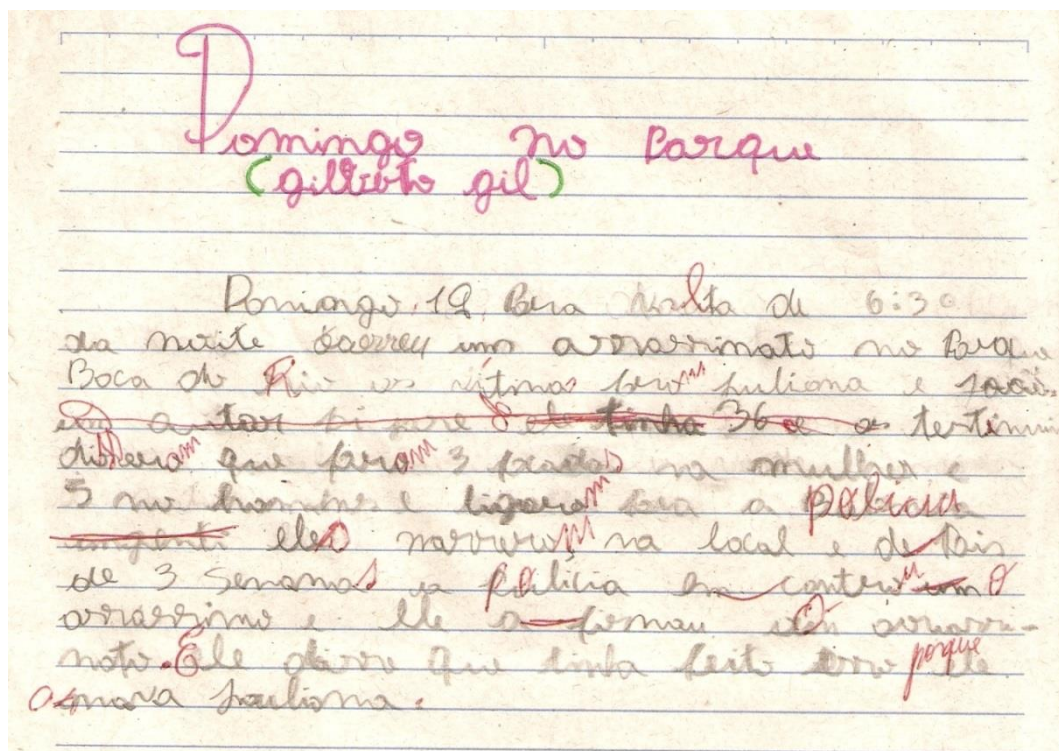 Domingo no Parque
(gilberto gil)
Domingo 19, Pora volta de 6:30
da noite ocorreu um assassinato no Parque
Boca do Rio as vitimas forom Juliana e João
testimu
disserom que forom 3 facadas na mulher e
5 no homem e ligarom para a policia
eles morrerom na local e de Pois
de 3 semanas a policia em controu o
assassino e ele a firmou o assassi-
nato. Ele disse que tinha feito isso porque ele
amava Juliana.